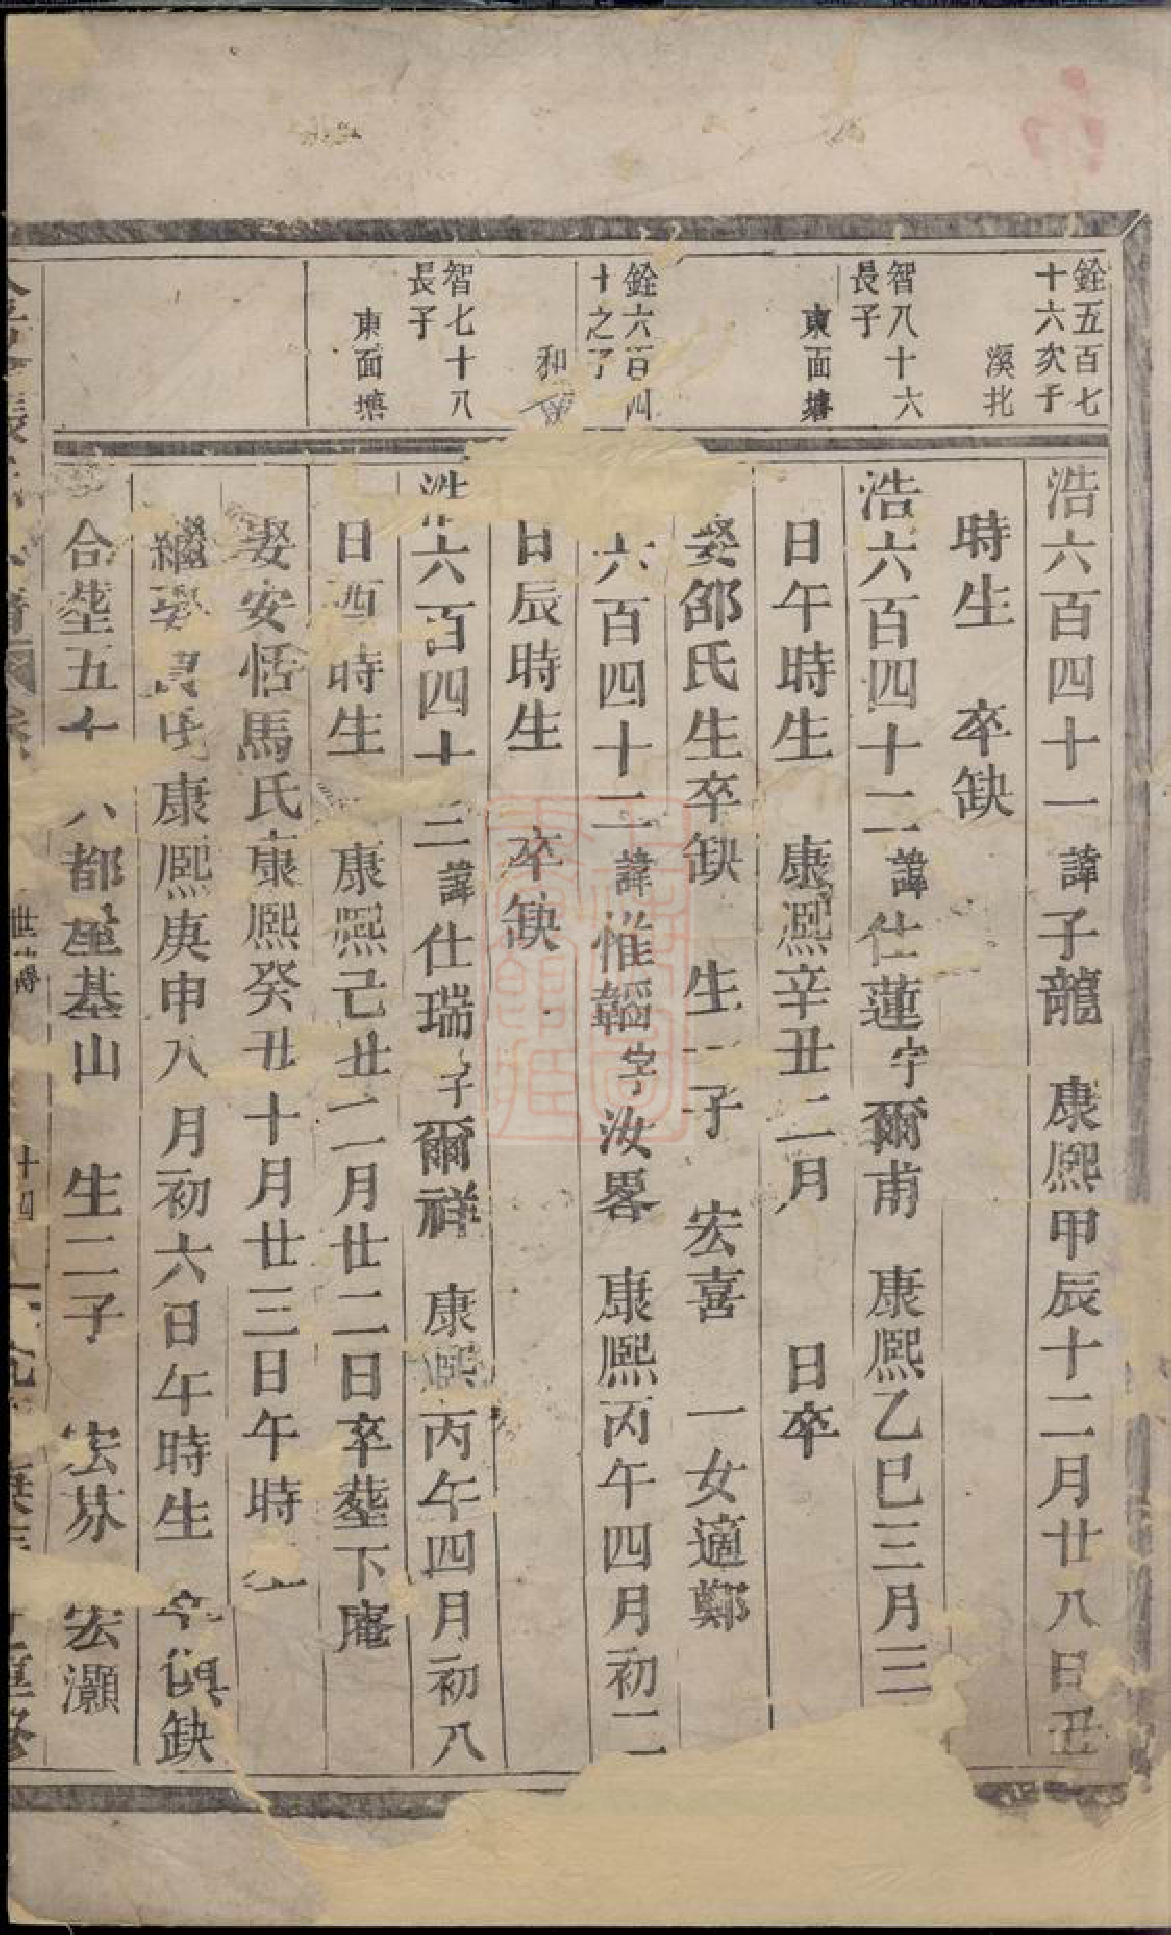 銓五百七
十六次子
溪北
浩六百四十一諱子龍 康熙甲辰十二月廿八日丑
時生 卒缺
智八十六
長子
東面塘
浩六百四十二諱仕蓮字爾甫 康熙乙巳三月三
日午時生 康熙辛丑二月 日卒
娶邵氏生卒缺 生一子 宏喜 一女適鄭
銓六百四
十之子
和
六百四十二諱惟韜字汝畧 康熙丙午四月初二
日辰時生 卒缺
智七十八
長子
東面塘
浩六百四十三諱仕瑞字爾祥 康熙丙午四月初八
日酉時生 康熙己丑二月廿二日卒塟下庵
娶安恬馬氏康熙癸丑十月廿三日午時生
繼娶 氏康熙庚申八月初六日午時生 卒俱缺
合塟五十六都塟基山 生二子 宏芬 宏灝
世傳
十四
重修